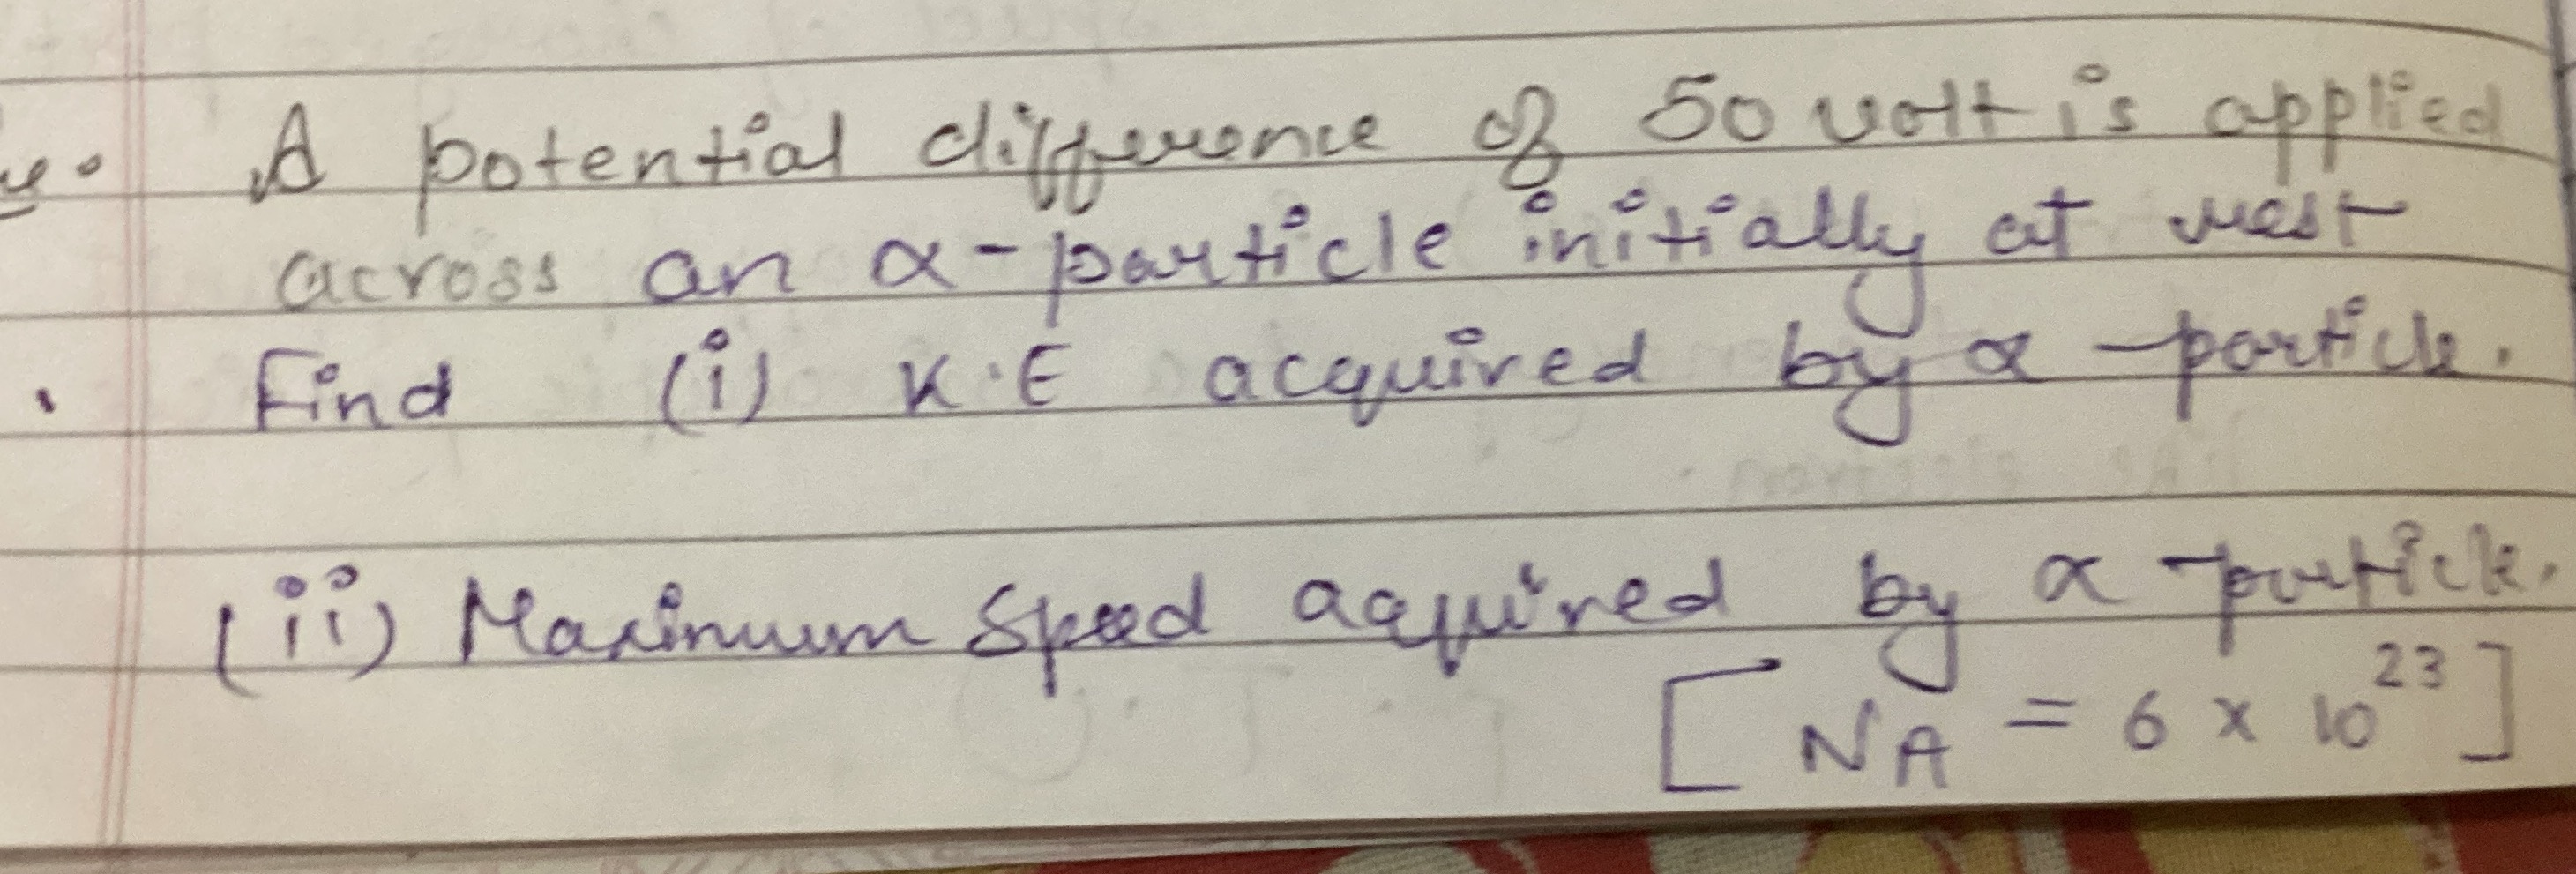 A potential difference of 50 volt is applied
across an α-particle initially at rest
Find (i) K.E acquired by α-particle.
(ii) Maximum Speed acquired by α-particle.
[NA = 6 × 10²³]